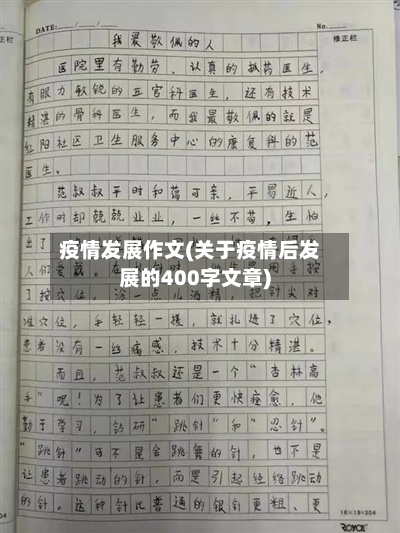 DATE: No.
修正栏 我最敬佩的人 修正栏
医院里有勤劳、认真的抓药医生，
有眼力敏锐的五官科医生，还有技术
精湛的骨科医生，而我最敬佩的就是
红阳社区卫生服务中心的康复科的范
医生。
范叔叔平时和蔼可亲，平易近人，
工作时却兢兢业业，一丝不苟，生怕
出了
疫情发展作文(关于疫情后发
展的400字文章)
人们爱戴
按穴位，涂一点儿酒精，把针尖对
准穴位，手轻轻一搓，就扎进了穴位，
患者没有一丝痛感，技术十分精湛。
而且，范叔叔还是一个“杏林高
手”呢！为了让患者们更快痊愈，他
勤于学习，钻研“跳针”和“忍针”。
“跳针”可不是会跳舞的针，也不是
让患者跳动的针，而是引起经络跳动
的针。这种针比普通的银针更粗、更
16×19=304
ROYAL